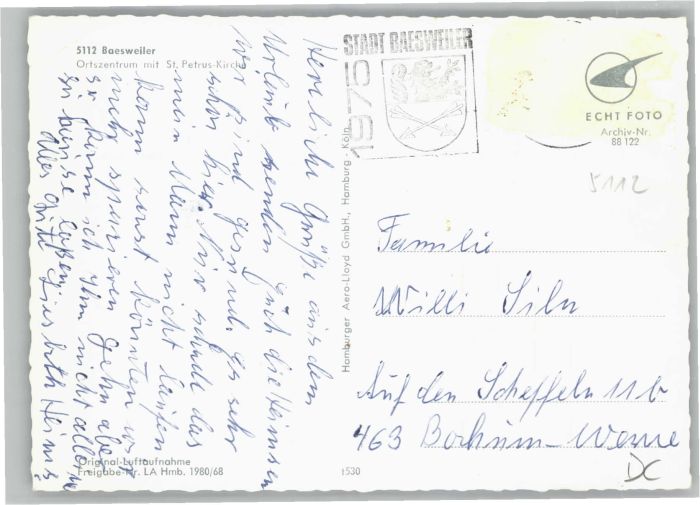 5112 Baesweiler
Ortszentrum mit St. Petrus-Kirche
Herzliche Grüße aus dem
Urlaub senden Euch die Heinsen
wir sind gesund. Es sehr
schön hier. Nur schade das
mein Mann nicht laufen
kann sonst könnten wir
mehr spazieren gehn aber
so kann ich ihn nicht alleine
zu hause laßen.
Alles Gute Liesbeth Heins
Original-Luftaufnahme
Freigabe-Nr. LA Hmb. 1980/68
Hamburger Aero-Lloyd GmbH., Hamburg - Köln
t530
STADT BAESWEILER
1975
ECHT FOTO
Archiv-Nr.
88 122
5112
Familie
Willi
Auf den Scheffeln 11b
463 Bochum-Werne
DC